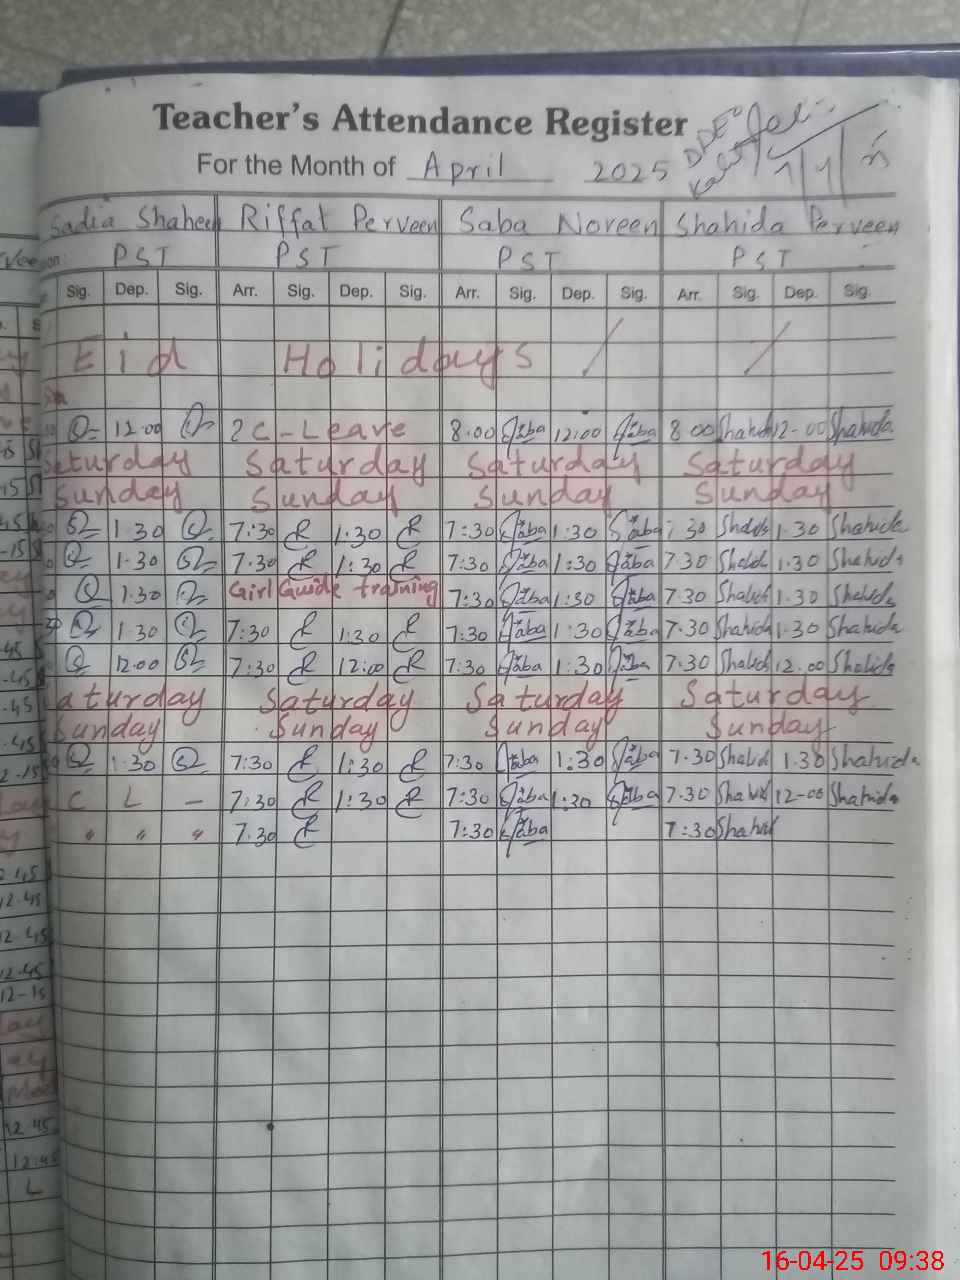 Teacher's Attendance Register
For the Month of April 2025
Sadia Shaheen Riffat Perveen Saba Noreen Shahida Perveen
PST PST PST PST
Sig. Dep. Sig. Arr. Sig. Dep. Sig. Arr. Sig. Dep. Sig. Arr. Sig. Dep. Sig.
Eid Holidays
12.00 C-Leave 8.00 Saba 12:00 Saba 8 00 Shahida 12-00 Shahida
Saturday Saturday Saturday Saturday
Sunday Sunday Sunday Sunday
1.30 7:30 R 1.30 R 7:30 Saba 1:30 Saba 7.30 Shahida 1.30 Shahida
1.30 7.30 R 1:30 R 7:30 Saba 1:30 Saba 7.30 Shahida 1.30 Shahida
1.30 Girl Guide training 7:30 Saba 1:30 Saba 7.30 Shahida 1.30 Shahida
1.30 7:30 R 1:30 R 7:30 Saba 1:30 Saba 7.30 Shahida 1.30 Shahida
12.00 7:30 R 12:00 R 7:30 Saba 1:30 Saba 7.30 Shahida 12.00 Shahida
Saturday Saturday Saturday Saturday
Sunday Sunday Sunday Sunday
1.30 7:30 R 1:30 R 7:30 Saba 1:30 Saba 7.30 Shahida 1.30 Shahida
C L - 7:30 R 1:30 R 7:30 Saba 1:30 Saba 7.30 Shahida 12-00 Shahida
" " " 7.30 R 7:30 Saba 7:30 Shahida
16-04-25 09:38